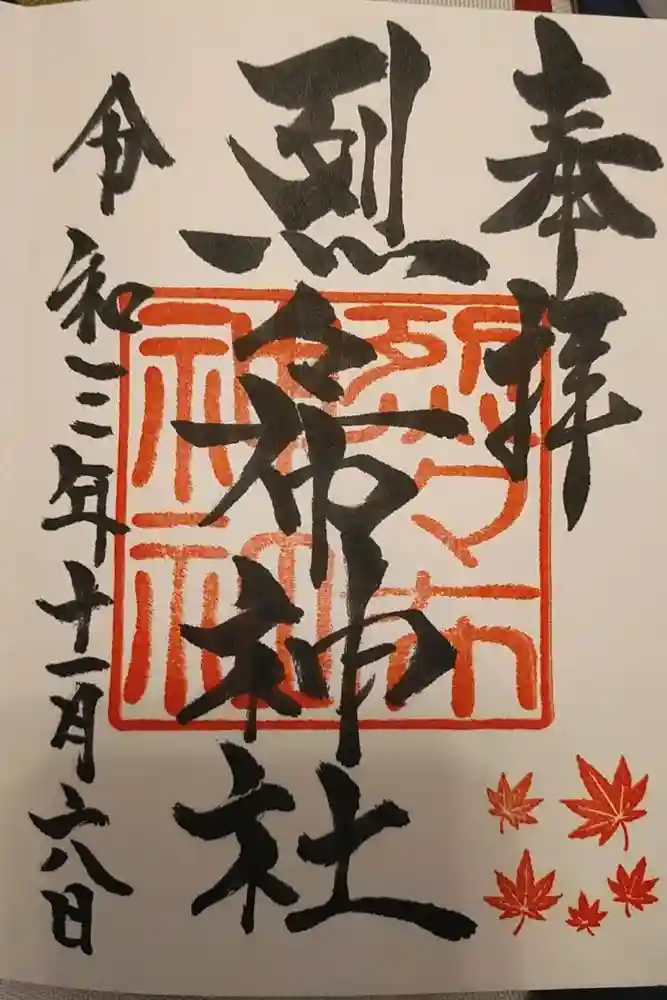 奉拝
烈々布神社
令和三年十一月六日
烈々布
神社